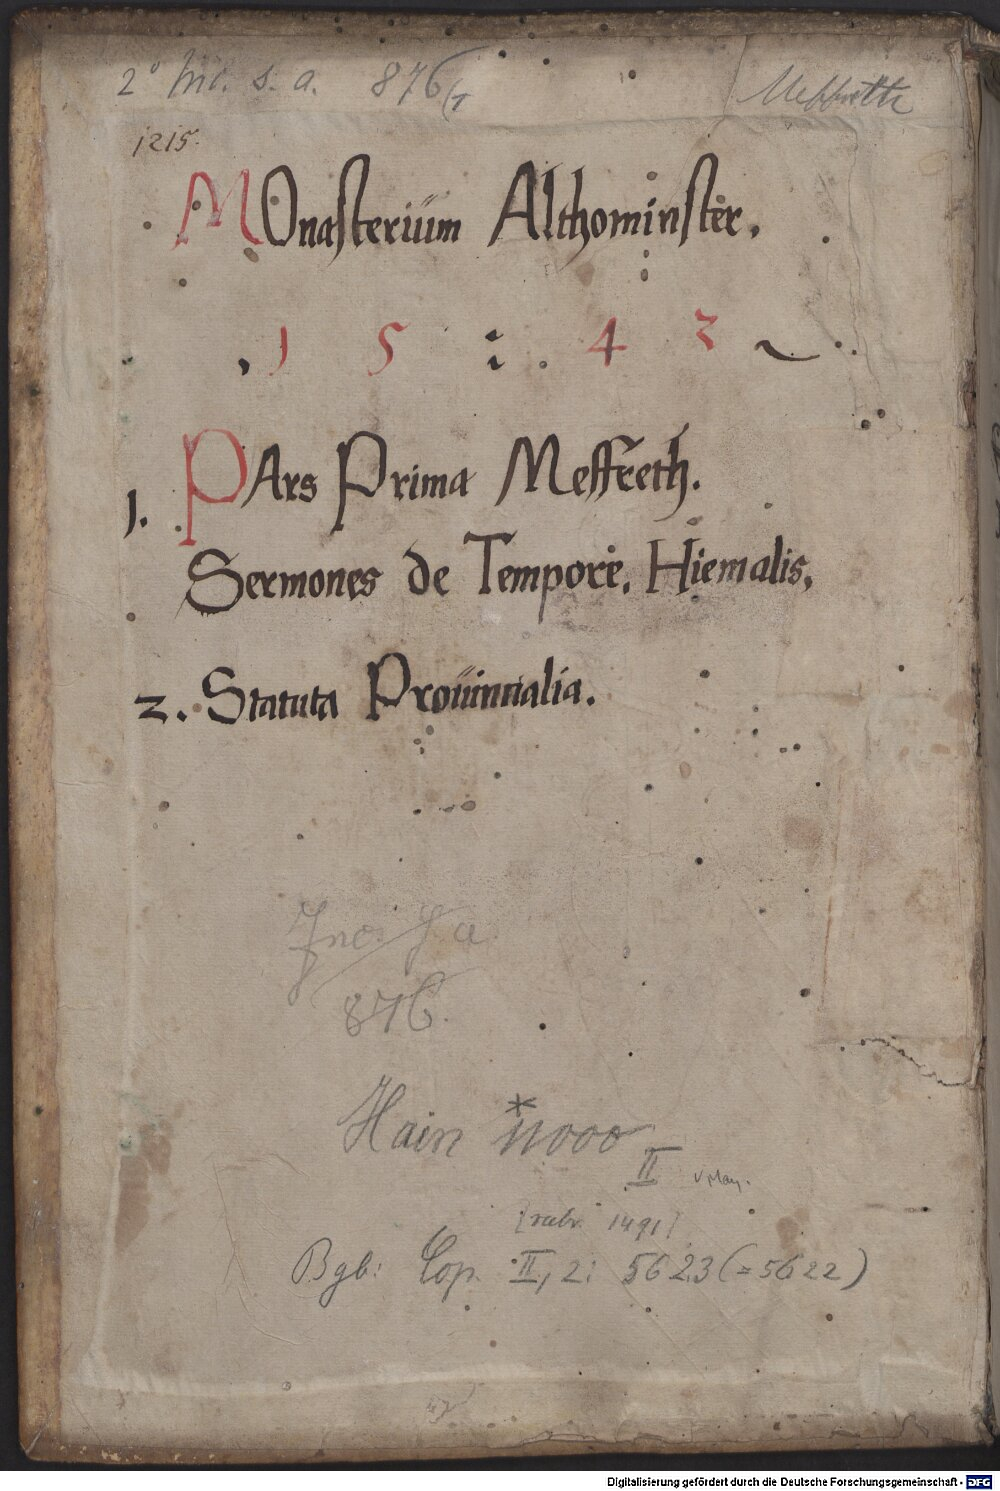 2° Inc. s. a. 876 Meffreth
1215.
MOnasteriüm Althominster.
1 5 : 4 3
1. PArs Prima Meffreth.
Sermones de Tempore. Hiemalis.
2. Statuta Proüincialia.
Inc. s. a.
876.
Hain *11000
II
[rubr. 1491]
Bgb: Cop. II, 2: 5623 (=5622)
Digitalisierung gefördert durch die Deutsche Forschungsgemeinschaft - DFG